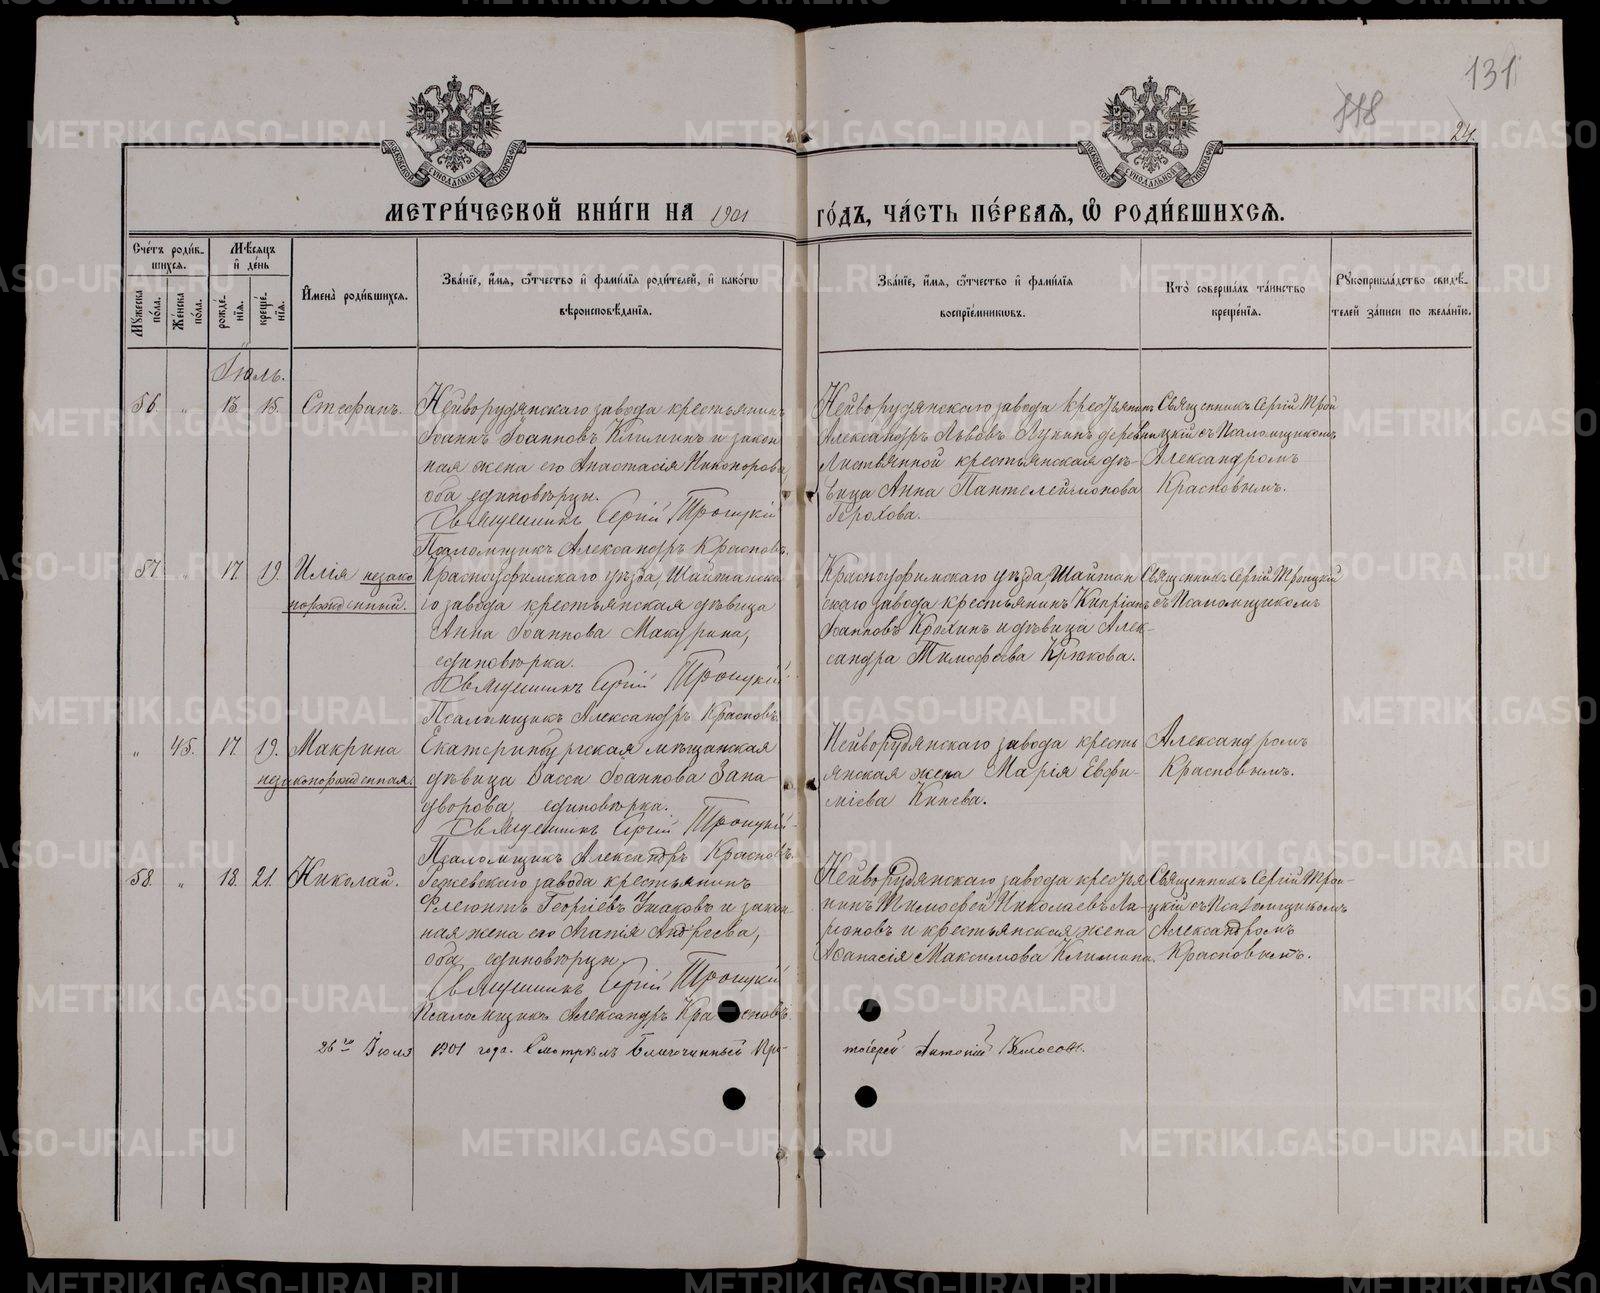 131
118
24.
МЕТРИ́ЧЕСКОЙ КНИ́ГИ НА 1901 ГО́ДЪ, ЧА́СТЬ ПЕ́РВАЯ, Ѽ РОДИ́ВШИХСЯ.
Сче́тъ роди́вшихся.
Му́жеска по́ла.
Же́нска по́ла.
Мѣ́сяцъ и҆ де́нь
рожде́нїя.
креще́нїя.
И҆мена̀ роди́вшихся.
Зва́нїе, и҆́мя, ѻ҆́тчество и҆ фами́лїя роди́телей, и҆ како́гѡ
вѣроисповѣ́данїя.
Зва́нїе, и҆́мя, ѻ҆́тчество и҆ фами́лїя
воспрїе́мникѡвъ.
Кто̀ соверша́лъ та́инство
креще́нїя.
Рꙋкоприкла́дство свидѣ́-
телей за́писи по жела́нїю.
Іюль.
56. „ 13. 15. Стефанъ.
Нейворудянскаго завода крестьянинъ
Іоаннъ Іоанновъ Климинъ и закон
ная жена его Анастасія Никонорова,
оба единовѣрцы.
Священникъ Сергій Троицкій
Псаломщикъ Александръ Красновъ.
Нейворудянскаго завода крестьянинъ
Александръ Львовъ Лукинъ деревни
Листвянной крестьянская дѣ-
вица Анна Пантелеймонова
Герохова.
Священникъ Сергій Трои
цкій съ Псаломщикомъ
Александромъ
Красновымъ.
57. „ 17. 19. Илія незако
норожденный.
Красноуфимскаго уѣзда, Шайтанска
го завода крестьянская дѣвица
Анна Іоаннова Макурина,
единовѣрка.
Священникъ Сергій Троицкій
Псаломщикъ Александръ Красновъ.
Красноуфимскаго уѣзда, Шайтан
скаго завода крестьянинъ Кипріанъ
Іоанновъ Крохинъ и дѣвица Алек-
сандра Тимофеева Крюкова.
Священникъ Сергій Троицкій
съ Псаломщикомъ
„ 45. 17. 19. Макрина
незаконорожденная.
Екатеринбургская мѣщанская
дѣвица Васса Іоаннова Запа-
дворова, единовѣрка.
Священникъ Сергій Троицкій
Псаломщикъ Александръ Красновъ.
Нейворудянскаго завода кресть
янская жена Марія Евфи-
міева Князева.
Александромъ
Красновымъ.
58. „ 18. 21. Николай.
Режевскаго завода крестьянинъ
Флегонтъ Георгіевъ Ушаковъ и закон-
ная жена его Агапія Андреева,
оба единовѣрцы.
Священникъ Сергій Троицкій
Псаломщикъ Александръ Красновъ.
Нейворудянскаго завода крестья
нинъ Тимофей Николаевъ Ла-
ріоновъ и крестьянская жена
Афанасія Максимова Климина.
Священникъ Сергій Трои-
цкій съ Псаломщикомъ
Александромъ
Красновымъ.
26го Іюля 1901 года. Смотрѣлъ Благочинный Про-
тоіерей Антоній